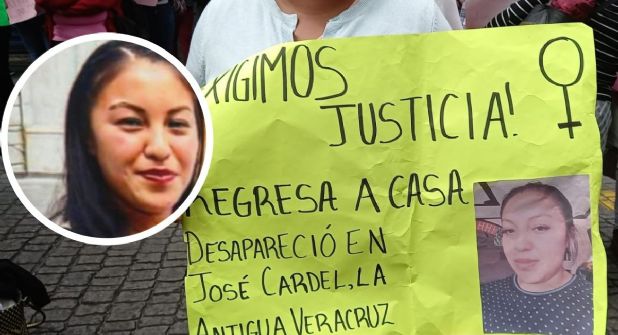 XIGIMOS
JUSTICIA!
REGRESA A CASA
DESAPARECIÓ EN
JOSÉ CARDEL, LA
ANTIGUA VERACRUZ